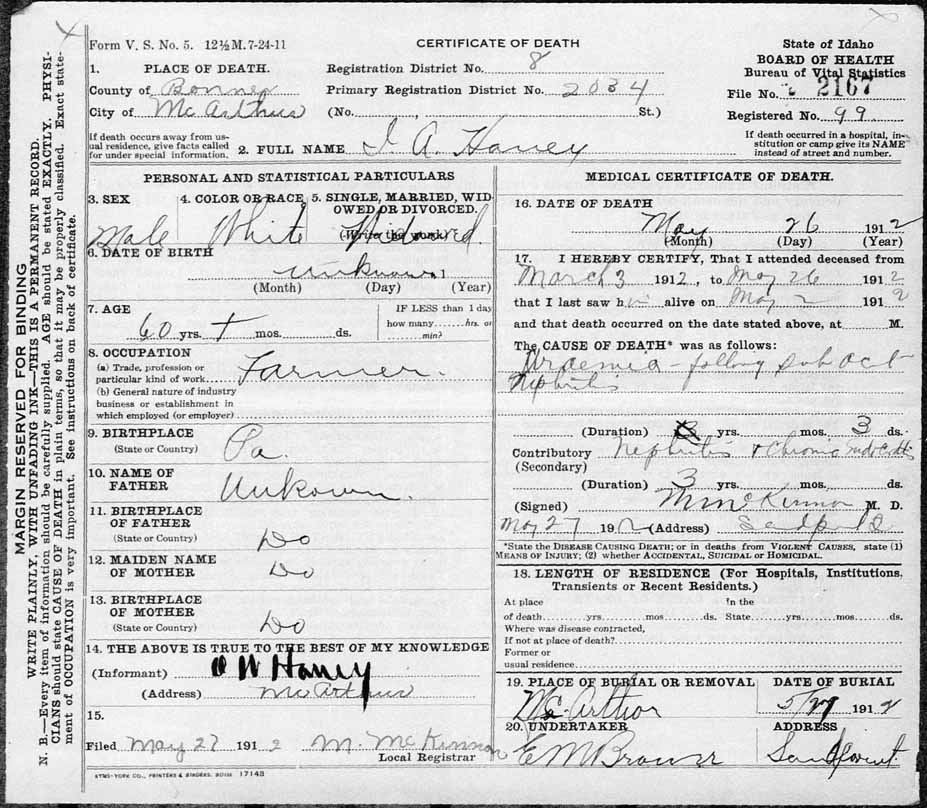 MARGIN RESERVED FOR BINDING
WRITE PLAINLY, WITH UNFADING INK—THIS IS A PERMANENT RECORD.
N. B.—Every item of information should be carefully supplied. AGE should be stated EXACTLY. PHYSI-
CIANS should state CAUSE OF DEATH in plain terms, so that it may be properly classified. Exact state-
ment of OCCUPATION is very important. See instructions on back of certificate.
Form V. S. No. 5. 12½M. 7-24-11
CERTIFICATE OF DEATH
State of Idaho
BOARD OF HEALTH
Bureau of Vital Statistics
File No. 2167
Registered No. 99
If death occurred in a hospital, in-
stitution or camp give its NAME
instead of street and number.
1. PLACE OF DEATH.
County of Bonner
City of McArthur
Registration District No. 8
Primary Registration District No. 2034
(No. , St.)
If death occurs away from us-
ual residence, give facts called
for under special information.
2. FULL NAME I. A. Haney
PERSONAL AND STATISTICAL PARTICULARS
3. SEX
Male
4. COLOR OR RACE
White
5. SINGLE, MARRIED, WID
OWED OR DIVORCED.
(Write the word)
Widowed.
6. DATE OF BIRTH
unknown 1
(Month) (Day) (Year)
7. AGE
60 yrs. + mos. ds.
IF LESS than 1 day
how many hrs. or
min?
8. OCCUPATION
(a) Trade, profession or
particular kind of work Farmer.
(b) General nature of industry
business or establishment in
which employed (or employer)
9. BIRTHPLACE
(State or Country) Pa.
10. NAME OF
FATHER Unkown.
11. BIRTHPLACE
OF FATHER
(State or Country) Do
12. MAIDEN NAME
OF MOTHER Do
13. BIRTHPLACE
OF MOTHER
(State or Country) Do
14. THE ABOVE IS TRUE TO THE BEST OF MY KNOWLEDGE
(Informant) O W Haney
(Address) McArthur
15.
Filed May 27 1912 M. McKinnon
Local Registrar
SYMS-YORK CO., PRINTERS & BINDERS, BOISE 17143
MEDICAL CERTIFICATE OF DEATH.
16. DATE OF DEATH
May 26 1912
(Month) (Day) (Year)
17. I HEREBY CERTIFY, That I attended deceased from
March 3 1912, to May 26 1912
that I last saw him alive on May 2 1912
and that death occurred on the date stated above, at M.
The CAUSE OF DEATH* was as follows:
Uraemia - following sub act
Nephritis
(Duration) yrs. mos. 3 ds.
Contributory Nephritis + Chronic
(Secondary)
(Duration) 3 yrs. mos. ds.
(Signed) M McKinnon M. D.
May 27 1912 (Address) Sandpoint
*State the DISEASE CAUSING DEATH; or in deaths from VIOLENT CAUSES, state (1)
MEANS OF INJURY; (2) whether ACCIDENTAL, SUICIDAL OR HOMICIDAL.
18. LENGTH OF RESIDENCE (For Hospitals, Institutions,
Transients or Recent Residents.)
At place In the
of death yrs. mos. ds. State yrs. mos. ds.
Where was disease contracted,
If not at place of death?
Former or
usual residence
19. PLACE OF BURIAL OR REMOVAL
McArthur
DATE OF BURIAL
5/27 1912
20. UNDERTAKER
E M Brower
ADDRESS
Sandpoint.